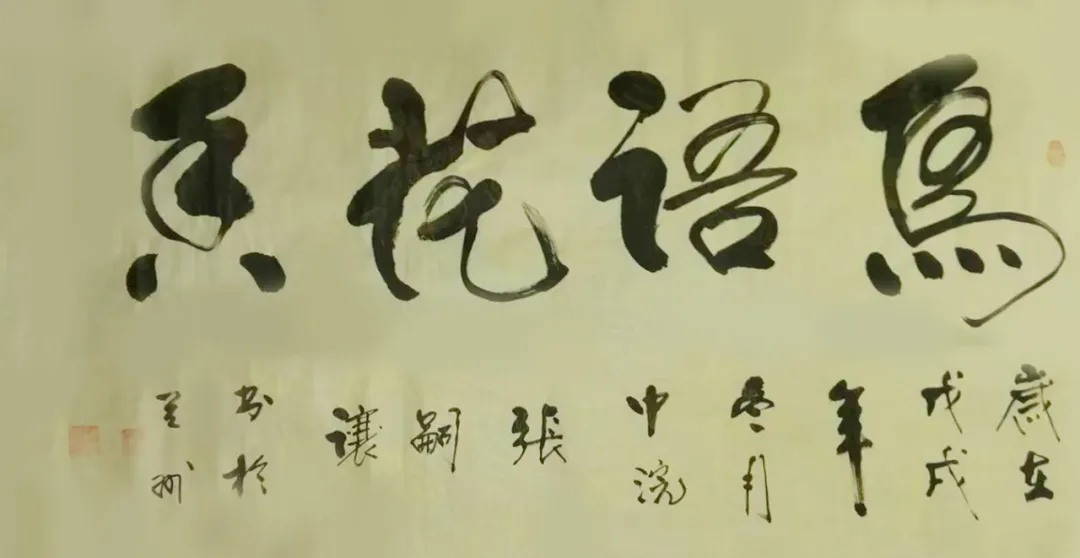 鳥語花香
歲在
戊戌
年
冬月
中浣
張
嗣
讓
书於
兰州